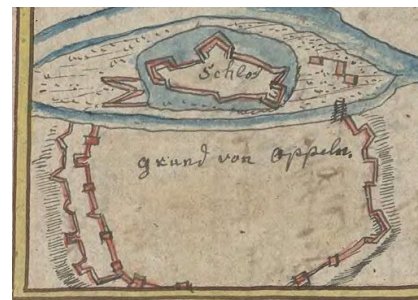 Schlos
grund von oppeln.